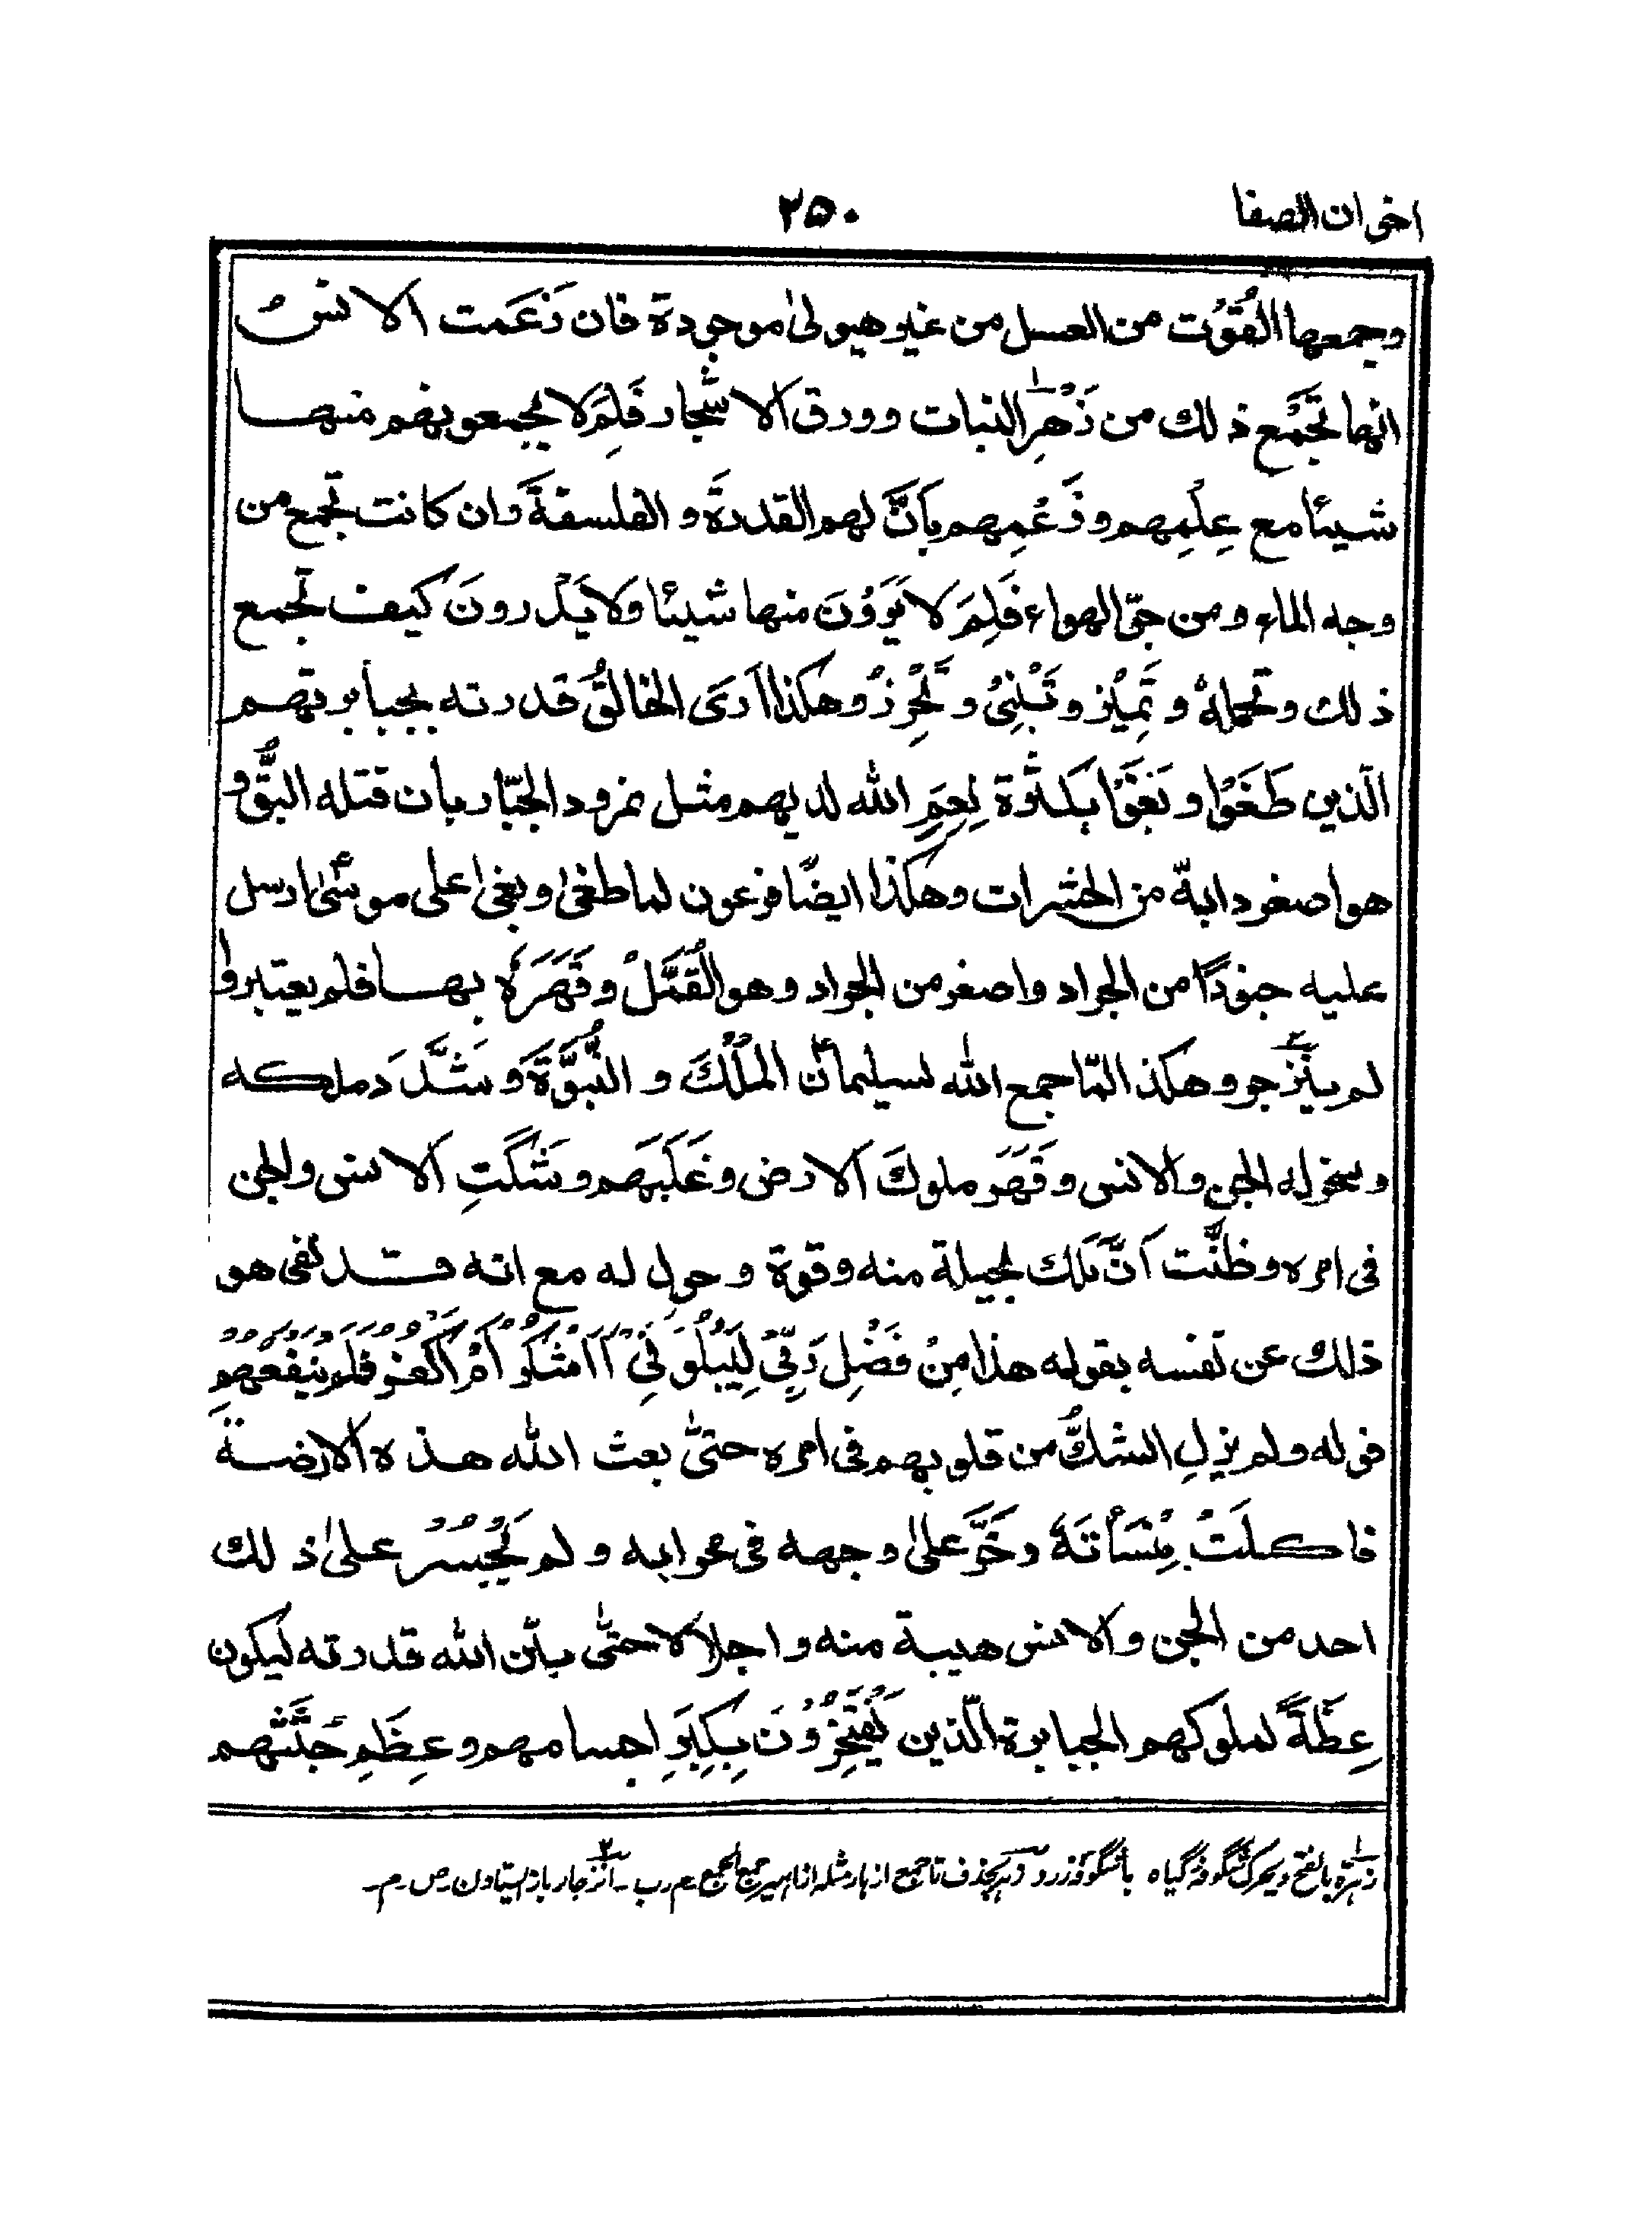 اخوان الصفا ٢٥٠
وجمعها القُوْت من العسل من غير هيولىٰ موجودة فان زَعَمت الانسُ
انها تَجْمَع ذلك من زَهْرِ النبات وورق الاشجار فَلِمَ لا يجمعو بهم منهـا
شيئا مع عِلْمِهم و زَعْمِهم بِاَنَّ لهم القدرةَ و الفلسفةَ وان كانت تجمع من
وجه الماء ومن جوّ الهواء فَلِمَ لا يَرَوْنَ منها شيئا ولا يَدْرونَ كيف تجمع
ذلك وتحملهٗ و تَمِيْز و تَبْنِىْ و تُحْرِزُ وهكذا اَرَى الخالقُ قدرته بجبابرتهـم
الّذين طَغَوْا و بَغَوْا بِكَثْرة نِعَمِ الله لديهم مثل نمرود الجبّار بان قتله البقُّ و
هو اصغر دابة من الحشرات وهكذا ايضًا فرعون لما طغىٰ وبغىٰ على موسىٰ ارسل
عليه جنودًا من الجراد واصغر من الجراد وهو القُمَّلُ وقَهَرَهٗ بهـا فلم يعتبروا
لم ينزَجر وهكذا لمّا جمع الله لسليمانؑ المُلْكَ و النُّبُوَّةَ و شَدَّدَ ملكه
وسخر له الجن والانس وقَهَر ملوكَ الارض وغَلَبَهم وشَكَّتِ الانس والجن
فى امره وظنَّت اَنَّ ذلك بحيلة منه وقوة و حول له مع انه قـد نفى هو
ذلك عن نفسه بقوله هذا مِنْ فَضْلِ رَبِّىْ لِيَبْلُوَنِىْ اَاَشْكُرُ اَمْ اَكْفُرُ فلم يَنْفَعْهُمْ
قوله ولم يزلِ الشكُّ من قلوبهم فى امره حتىّٰ بعث الله هـذه الارضـة
فاكـلَتْ مِنْسَأتَهٗ وخَرَّ علىٰ وجهه فى محرابه و لم يَجْسُر علىٰ ذلك
احد من الجن والانس هيبة منه و اجلالا حتىّٰ بيّن الله قدرته ليكون
عِظَةً لملوكهم الجبابرة الّذين يَفْتَخِرُوْنَ بِكِبَرِ اجسامهم وعِظَمِ جثثهم
زهرة بالفتح و يحرك شگوفه گياه يا شگوفه زرد و زهر بحذف تا جمع ازهار مثله ازاهير جمع الجمع م رب ـ انزجار باز ايستادن ص م ـ